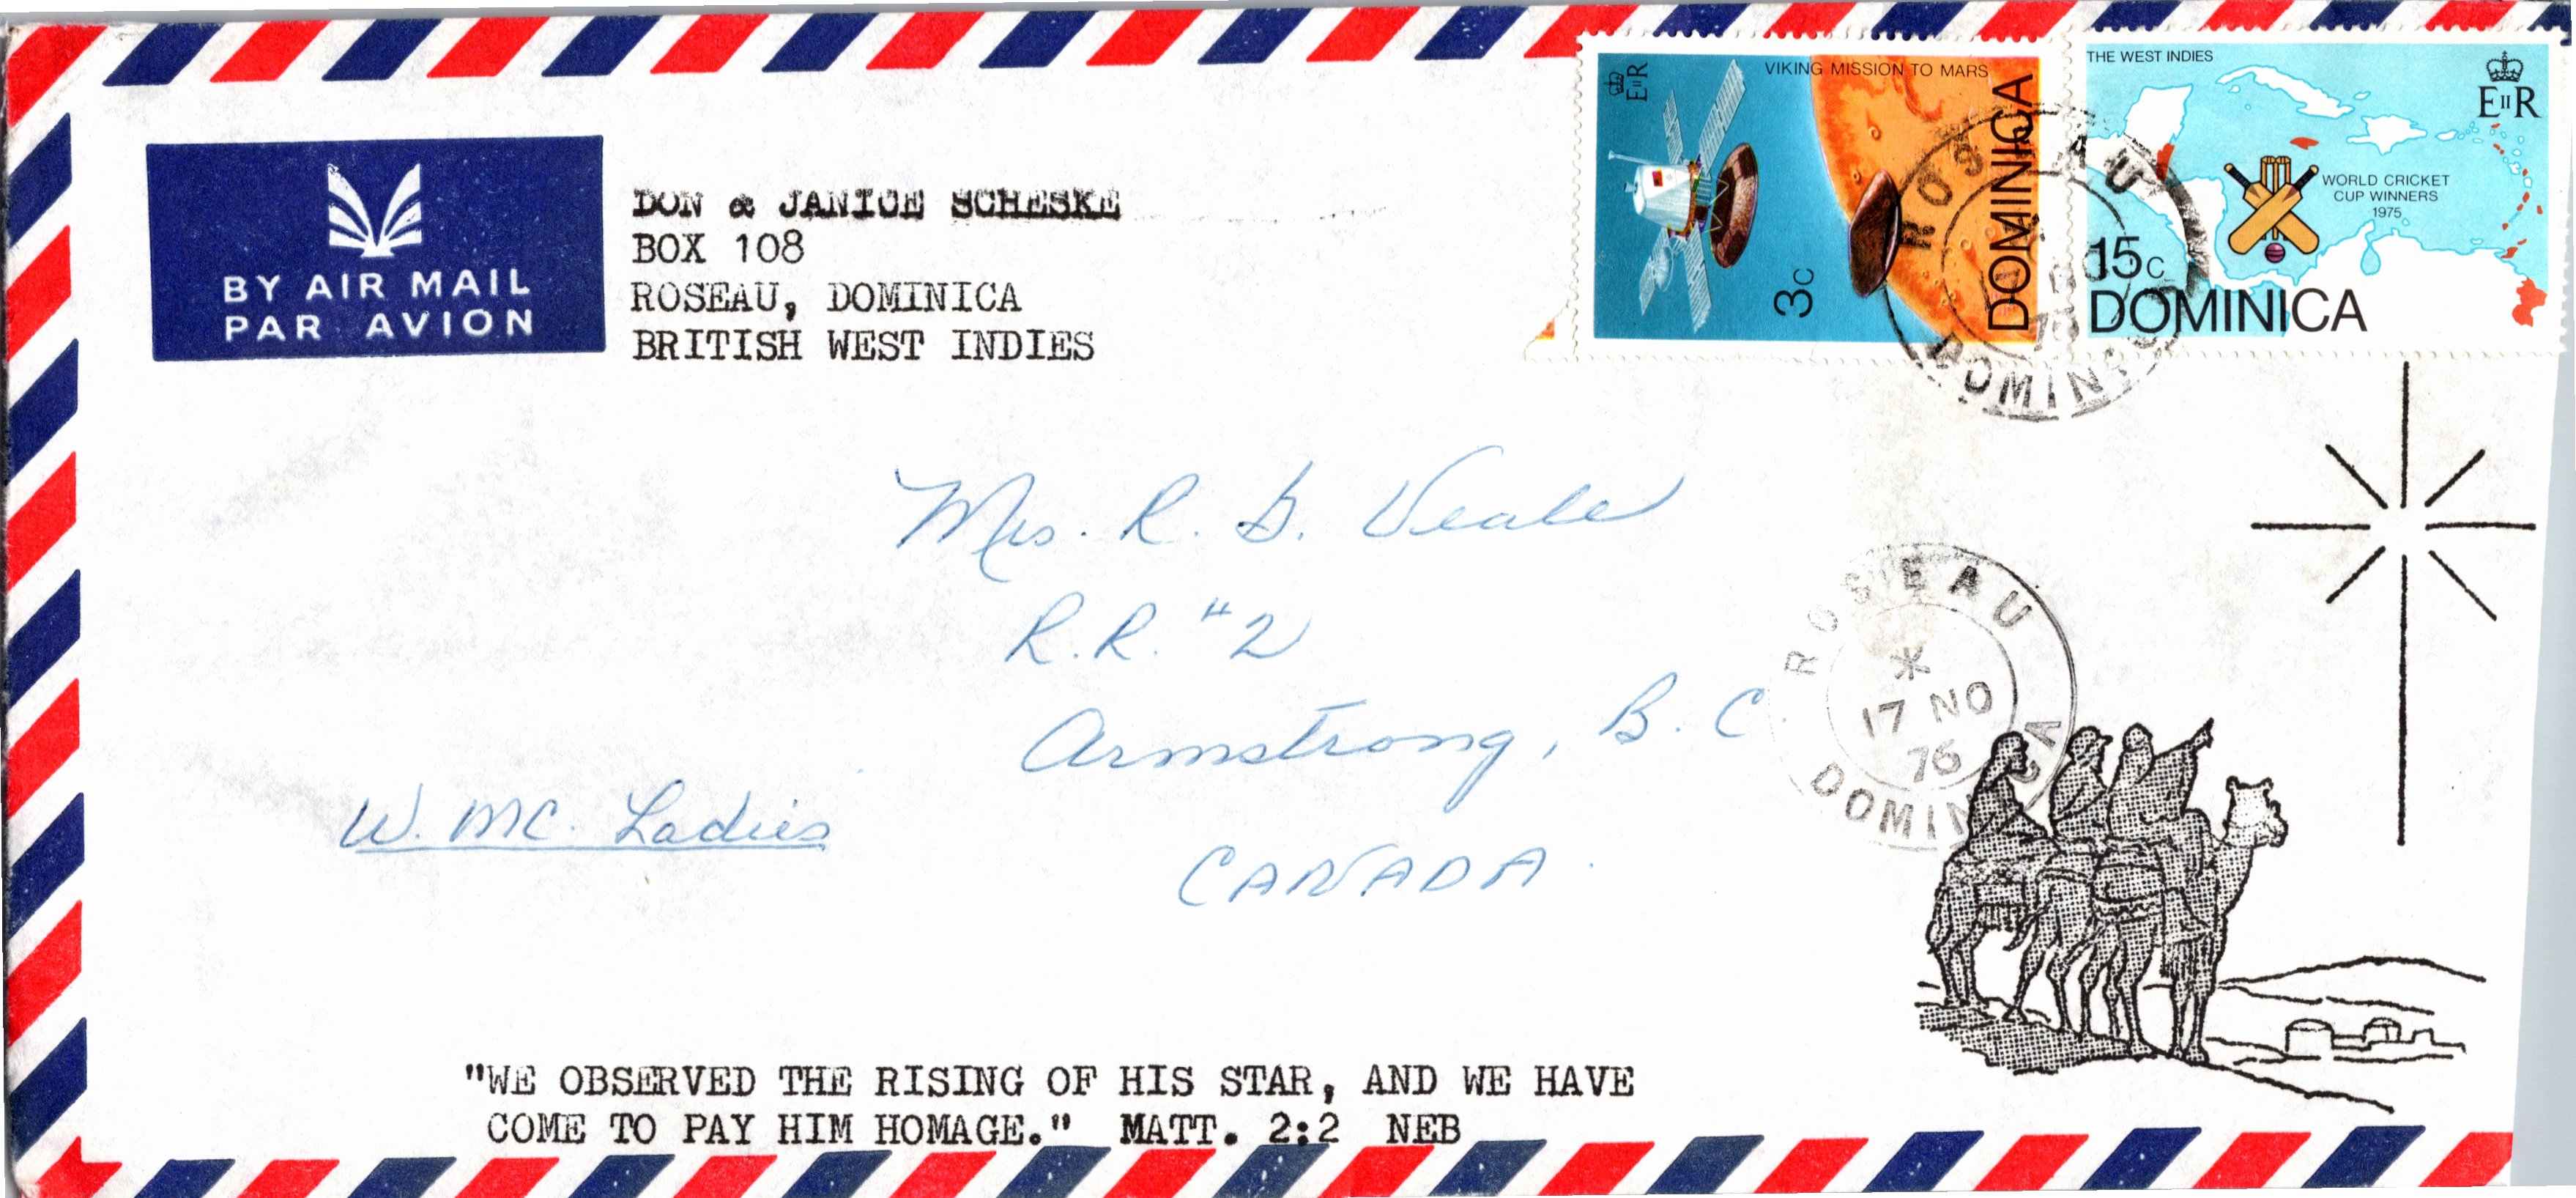 BY AIR MAIL
PAR AVION
DON & JANICE SCHESKE
BOX 108
ROSEAU, DOMINICA
BRITISH WEST INDIES
E II R
VIKING MISSION TO MARS
3c
DOMINICA
THE WEST INDIES
E II R
WORLD CRICKET
CUP WINNERS
1975
15c
DOMINICA
ROSEAU
DOMINICA
Mrs. R. G. Veale
R.R. #2
Armstrong, B.C.
CANADA
W. MC. Ladies
ROSEAU
*
17 NO
76
DOMINICA
"WE OBSERVED THE RISING OF HIS STAR, AND WE HAVE
COME TO PAY HIM HOMAGE." MATT. 2:2 NEB